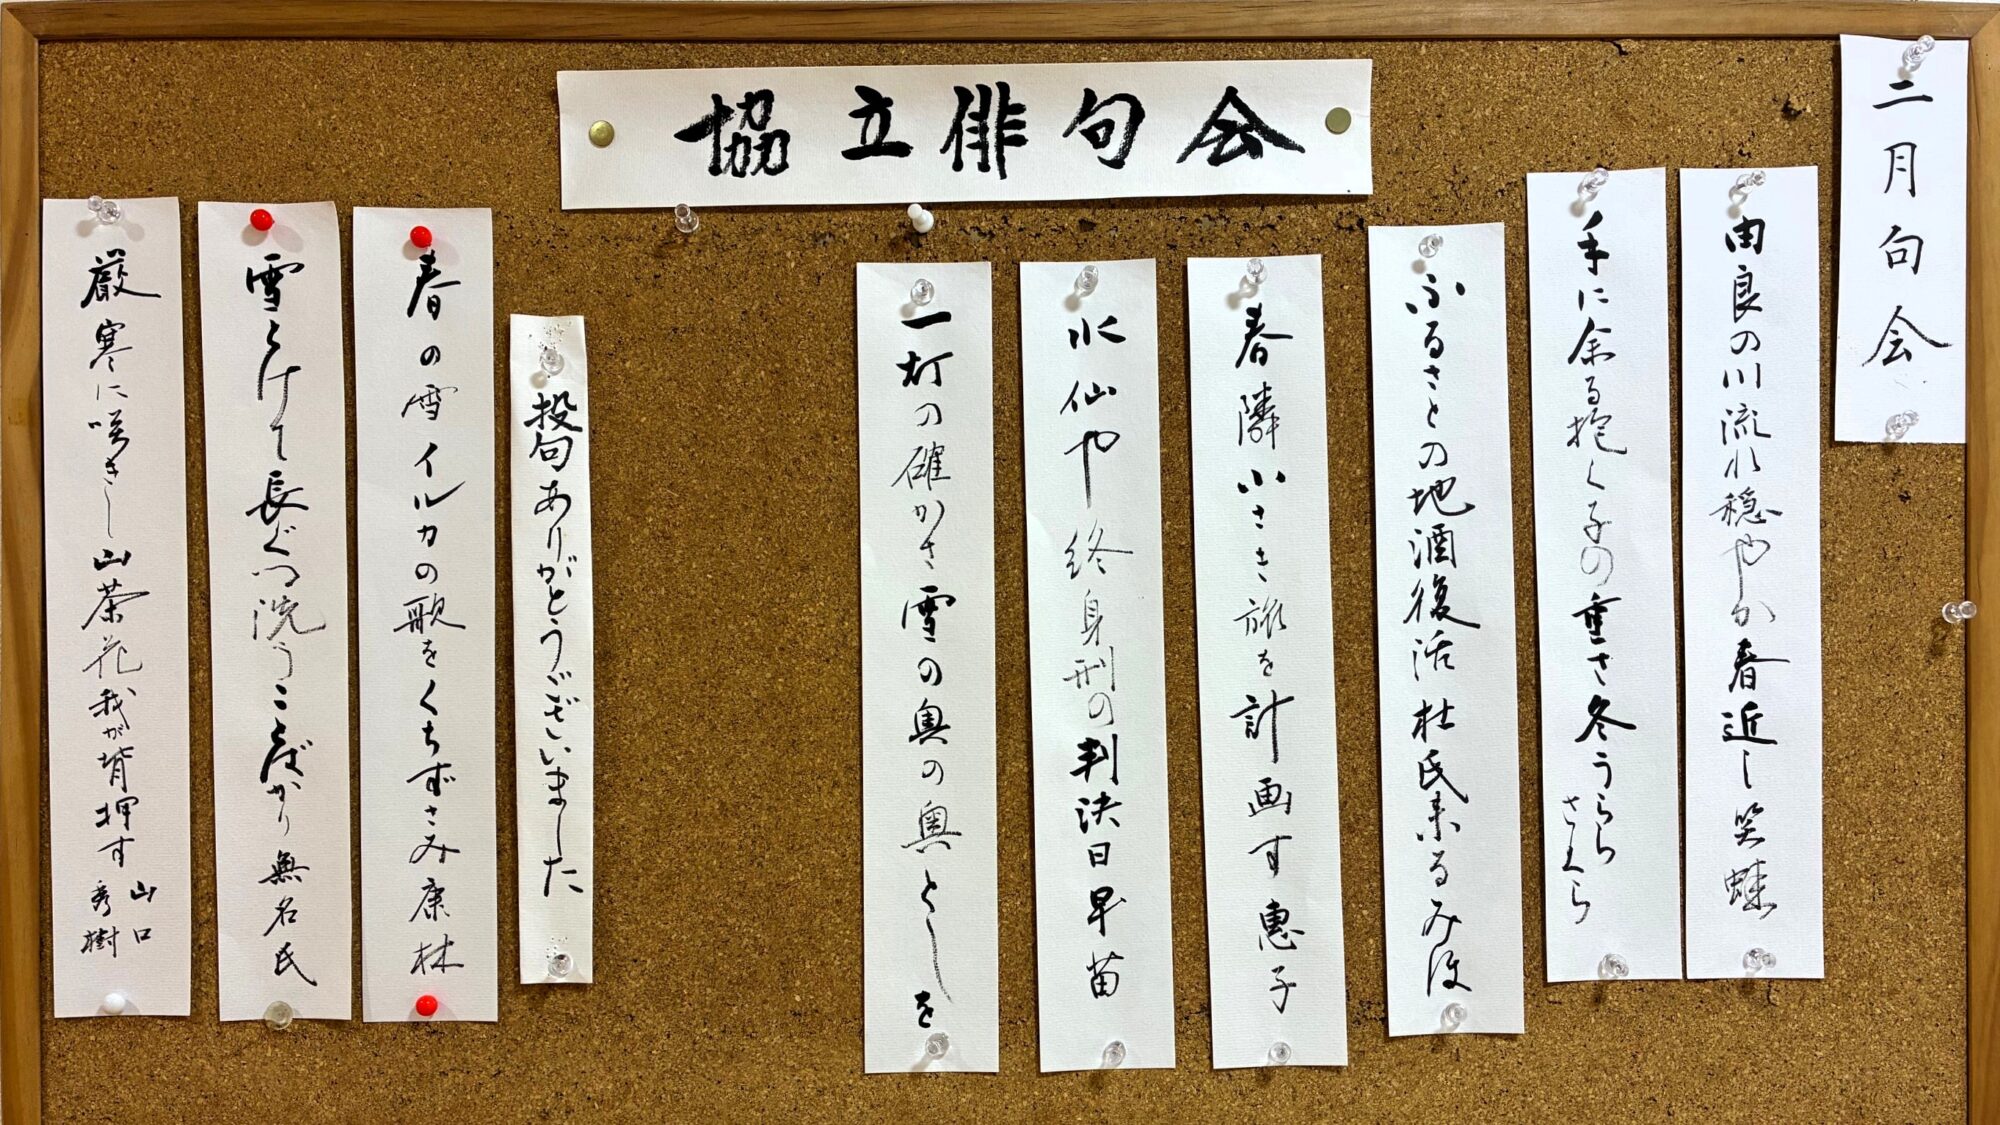 協立俳句会
二月句会
由良の川流れ穏やか春近し 笑蛙
手に余る抱く子の重さ冬うらら
さくら
ふるさとの地酒復活杜氏来る みほ
春隣小さき旅を計画す 恵子
水仙や終身刑の判決日 早苗
一灯の確かさ雪の奥の奥 としを
投句ありがとうございました
春の雪イルカの歌をくちずさみ 康林
雪とけて長ぐつ洗うことばかり 無名氏
厳寒に咲きし山茶花我が背押す
山口
秀樹